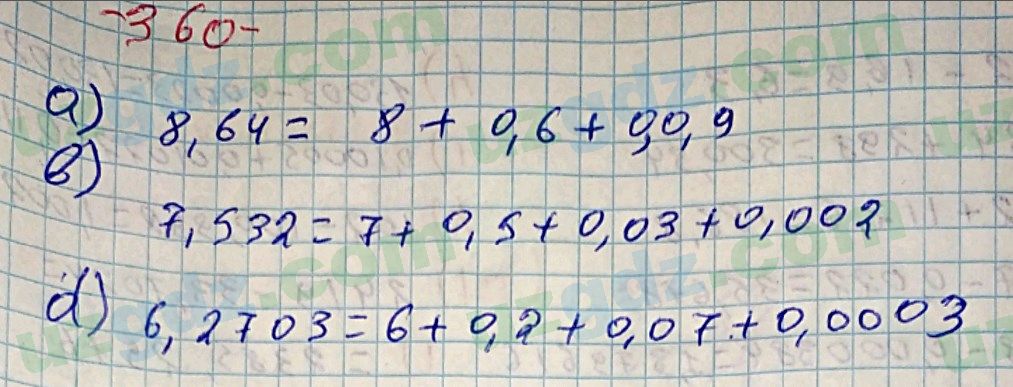 -360-
a) 8,64 = 8 + 0,6 + 0,0,9
b)
7,532 = 7 + 0,5 + 0,03 + 0,002
d) 6,2703 = 6 + 0,2 + 0,07 + 0,0003
uzgdz.com